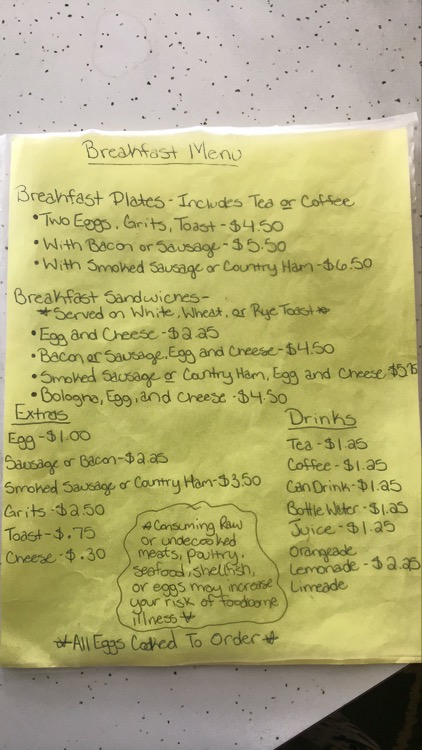 Breakfast Menu
Breakfast Plates - Includes Tea or Coffee
• Two Eggs, Grits, Toast - $4.50
• With Bacon or Sausage - $5.50
• With Smoked Sausage or Country Ham - $6.50
Breakfast Sandwiches -
* Served on White, Wheat, or Rye Toast *
• Egg and Cheese - $2.25
• Bacon or Sausage, Egg and Cheese - $4.50
• Smoked Sausage or Country Ham, Egg and Cheese $5.75
• Bologna, Egg, and Cheese - $4.50
Extras
Egg - $1.00
Sausage or Bacon - $2.25
Smoked Sausage or Country Ham - $3.50
Grits - $2.50
Toast - $.75
Cheese - $.30
Drinks
Tea - $1.25
Coffee - $1.25
Can Drink - $1.25
Bottle Water - $1.25
Juice - $1.25
Orangeade
Lemonade - $2.25
Limeade
* Consuming Raw
or undecooked
meats, poultry,
seafood, shellfish,
or eggs may increase
your risk of foodborne
illness *
* All Eggs Cooked To Order *